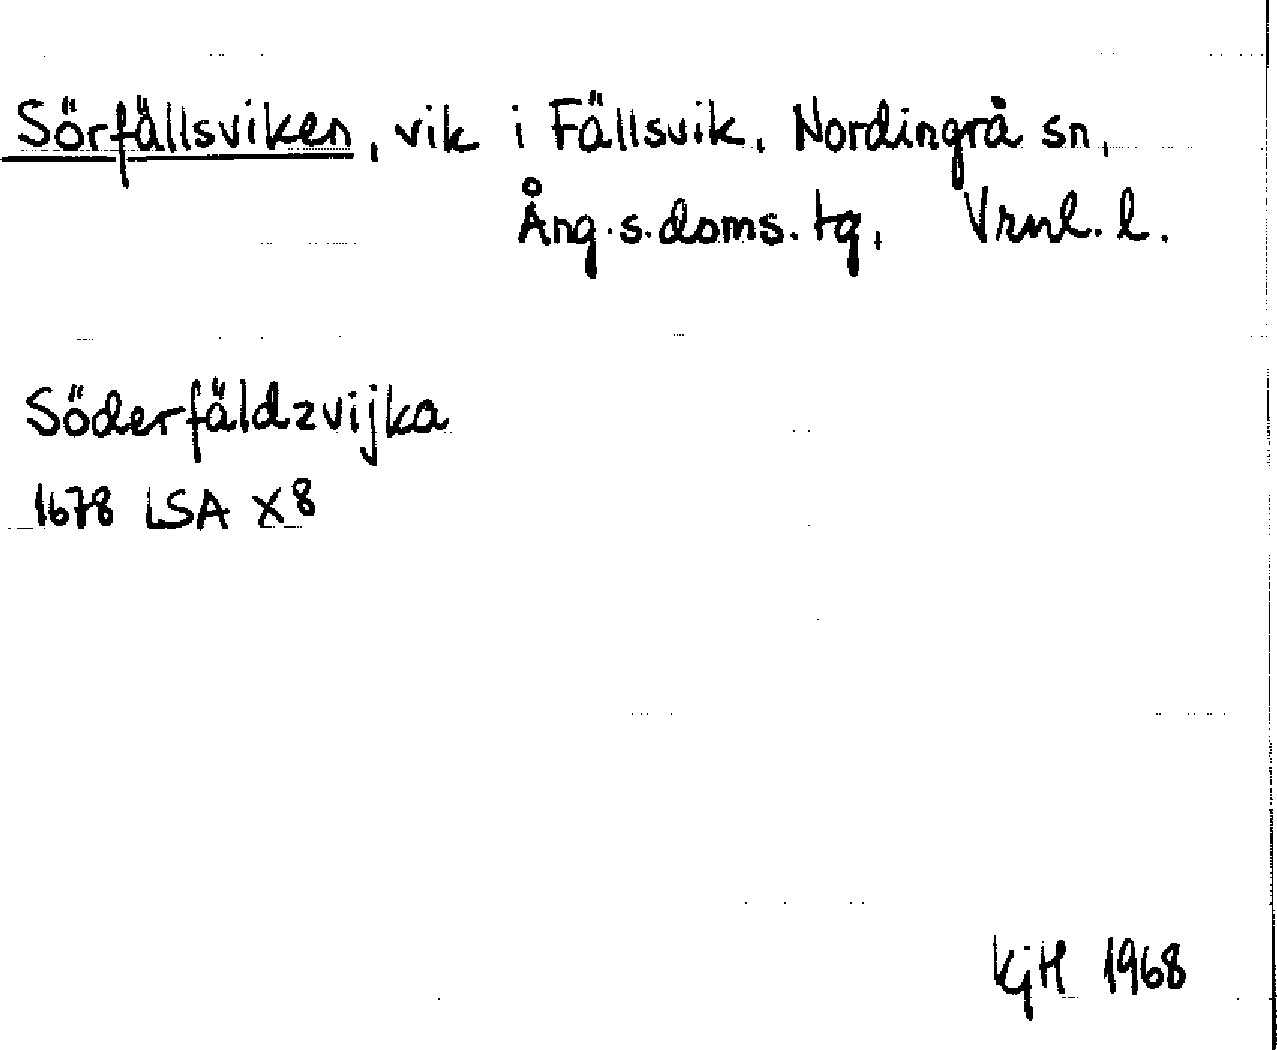 Sörfällsviken, vik i Fällsvik, Nordingrå sn,
Ång. s. doms. tg, Vrnl. l.
Söderfäldzvijka
1678 LSA X8
KjH 1968